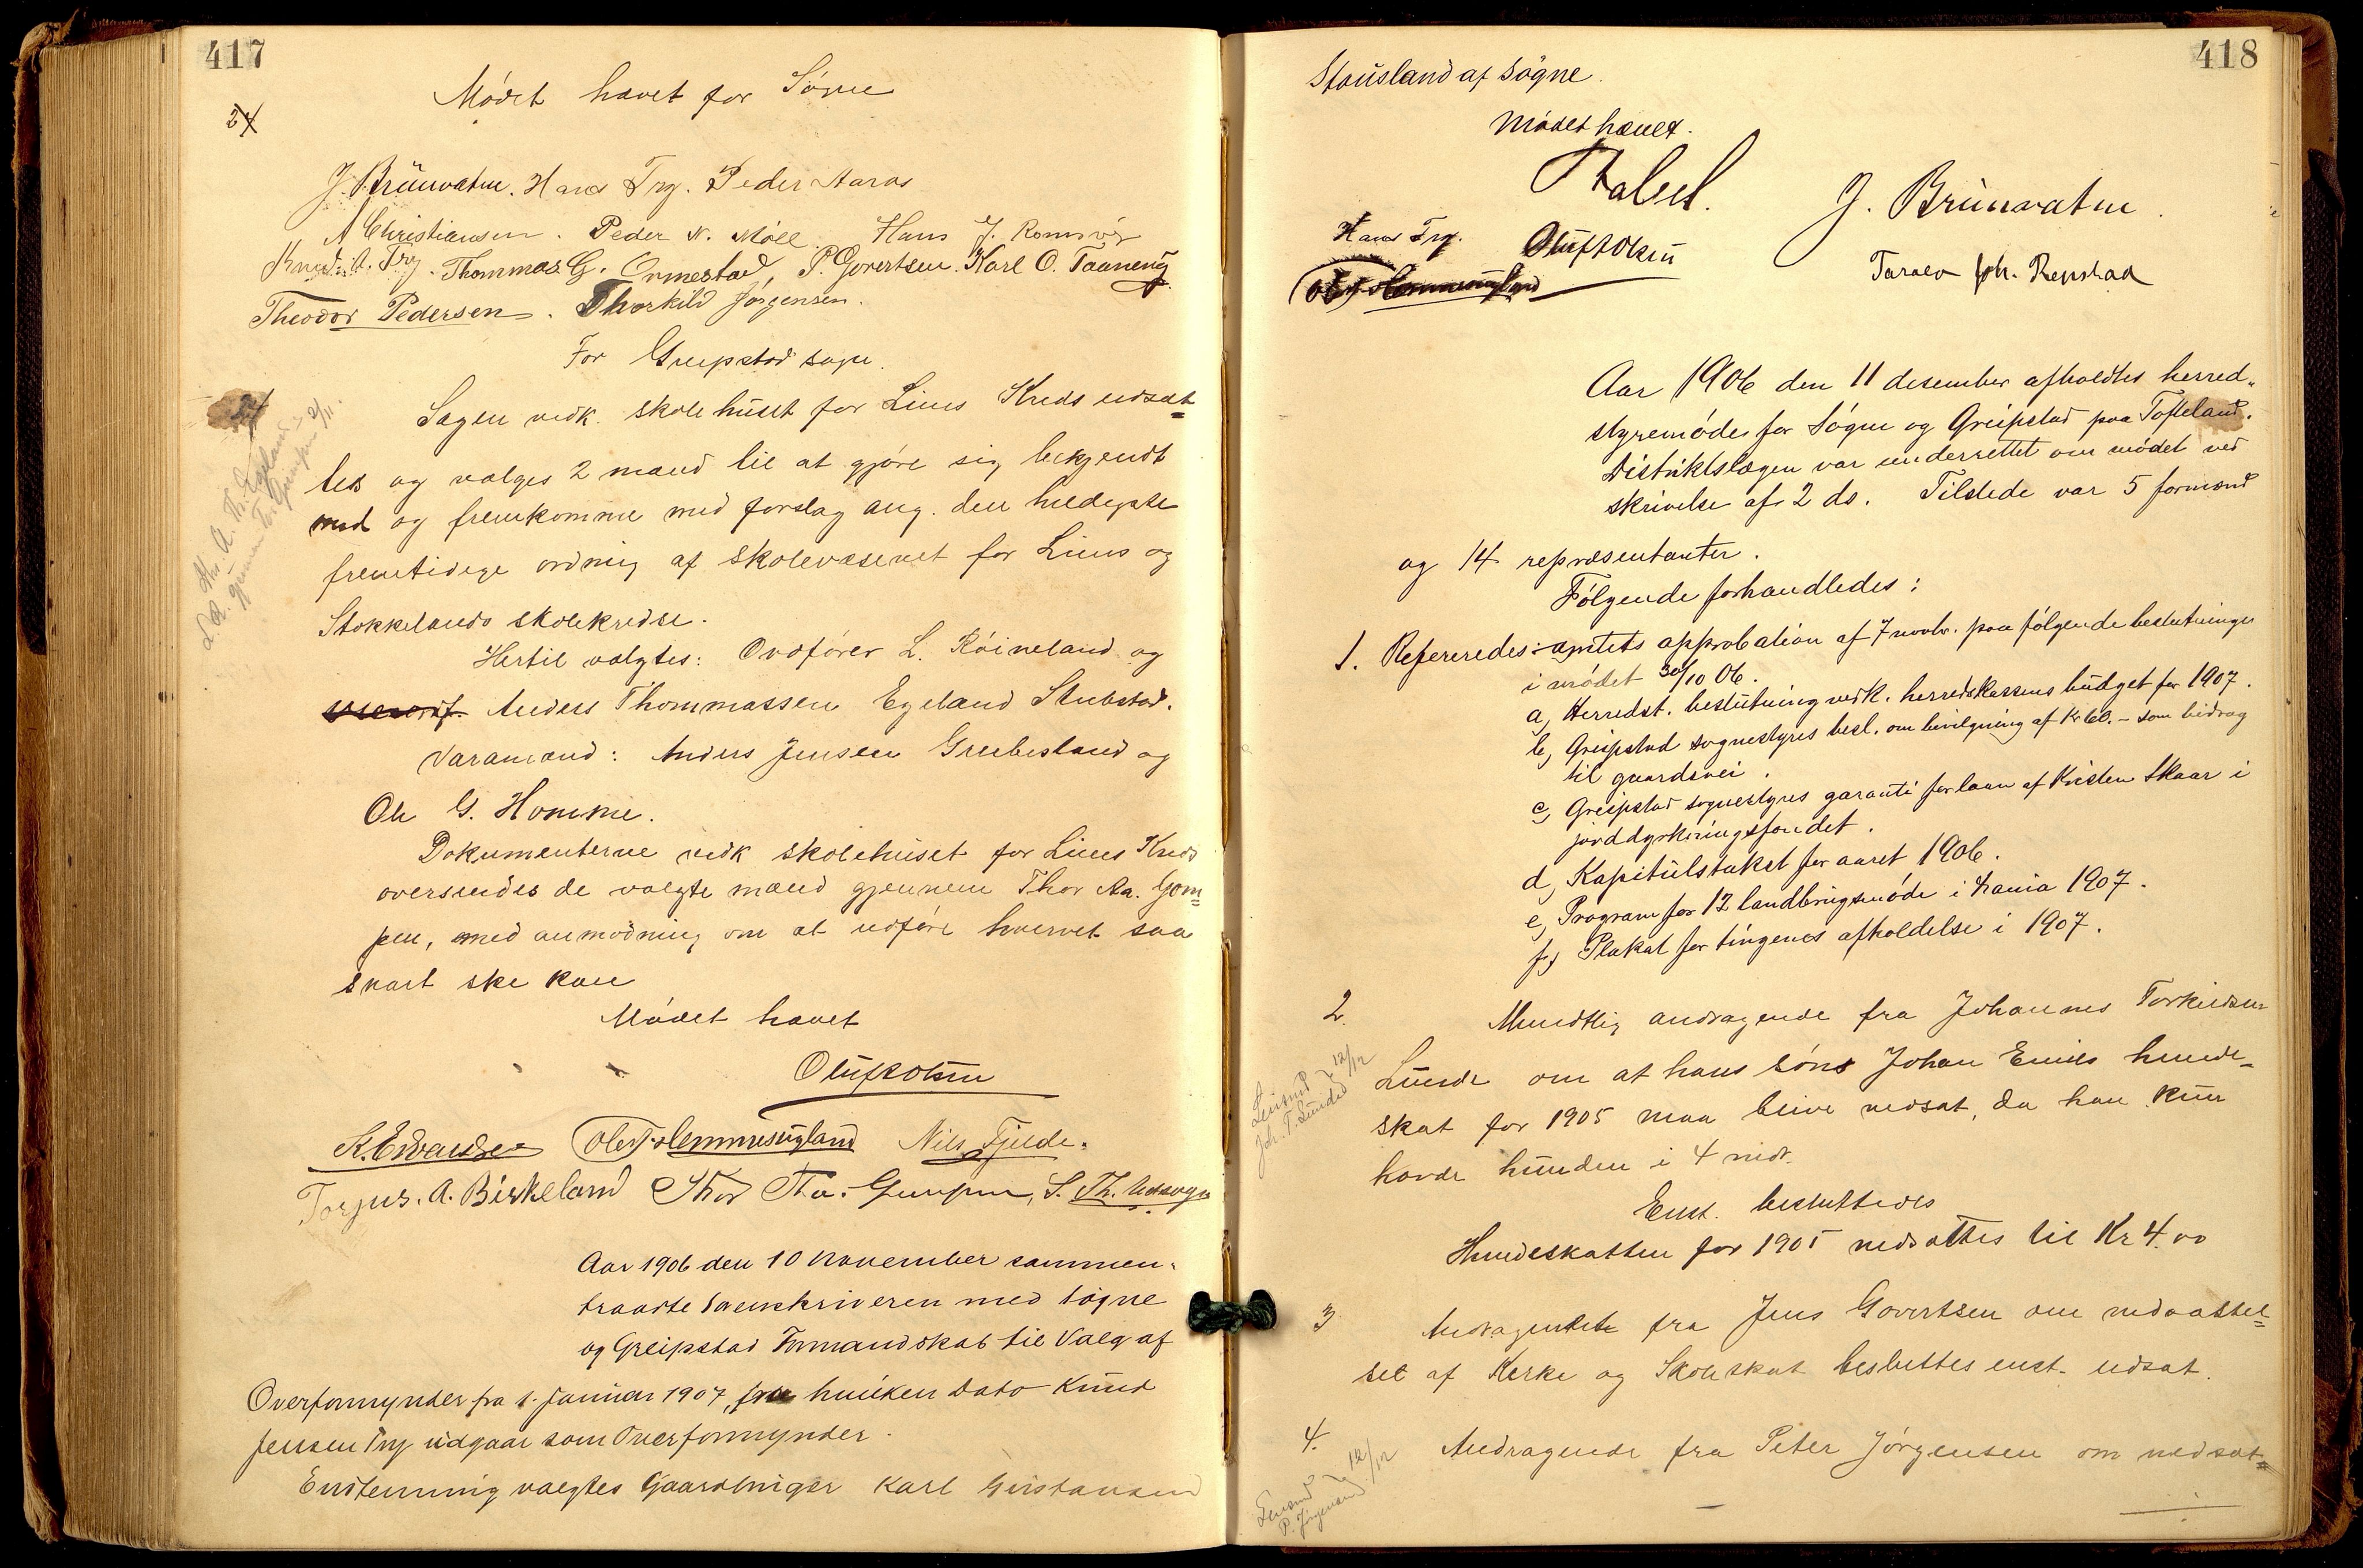 417
Mødet hævet for Søgne
24
J. Brünvatne. Hans Try. Peder Aaros
A Christiansen. Peder N. Møll. Hans J. Romsvig
Knud A. Try. Thommas G. Ormestad, P. Govertsen. Karl O. Taaneng
Theodor Pedersen. Thorkild Jørgensen.
For Greipstad sogn.
Sagen vedk. skolehuset for Lius Kreds udsæt=
tes og vælges 2 mænd til at gjøre sig bekjendt
med og fremkomme med forslag ang. den heldigste
fremtidige ordning af skolevæsenet for Lius og
Stokkelands skolekredse.
Hertil valgtes: Ordfører L. Røineland og
Anders Thommassen Egeland Stubstad.
Varamænd: Anders Jensen Grubesland og
Ole G. Homme.
Dokumenterne vedk skolehuset for Lius Kreds
oversendes de valgte mænd gjennem Thor Aa. Gom=
pen, med anmodning om at udføre hvervet saa
snart ske kan
Mødet hævet
Oluf Olsen
K. Edvardsen Ole T. Hemmesugland Nils Fjelde.
Torjus. A. Birkeland Thor Aa. Gumpen, S. Th.
Aar 1906 den 10 November sammen-
traadte Sorenskriveren med Søgne
og Greipstad Formandskab til Valg af
Overformynder fra 1. Januar 1907, fra hvilken Dato Knud
Jensen Try udgaar som Overformynder.
Enstemmig valgtes Gaardbruger Karl Gustavsen
418
Stausland af Søgne.
Mødet hævet.
Tabel. J. Brünvatne.
Hans Try. Oluf Olsen
Ole T. Hemmesugland Taralv Joh. Repstad
Aar 1906 den 11 desember afholdtes herred-
styremøde for Søgne og Greipstad paa Tofteland.
Distriktslægen var underrettet om mødet ved
skrivelse af 2 ds. Tilstede var 5 formænd
og 14 repræsentanter.
Følgende forhandledes:
1. Refereredes: amtets approbation af 7 novbr. paa følgende beslutninger
i mødet 30/10 06.
a, Herredst. beslutning vedk. herredskassens budget for 1907.
b, Greipstad sognestyres besl. om bevilgning af Kr 60.- som bidrag
til gaardsvei.
c, Greipstad sognestyres garanti for laan af Kristen Skaar i
jorddyrkningsfondet.
d, Kapitulstakst for aaret 1906.
e, Program for 12 landbrugsmøde i 1907.
f, Plakat for tingenes afholdelse i 1907.
2. Mundtlig andragende fra Johannes Torkildsen
Lunde om at hans søns Johan Emils hunde-
skat for 1905 maa blive nedsat, da han kun
havde hunden i 4 mdr.
Enst. besluttedes
Hundeskatten for 1905 nedsættes til Kr 4.00
Joh. T. Lunde 12/12
3 Andragendet fra Jens Govertsen om nedsættel=
set af Kirke og Skoleskat besluttes enst. udsat.
4. Andragende fra Peter Jørgensen om nedsæt=
P. Jørgensen 12/12